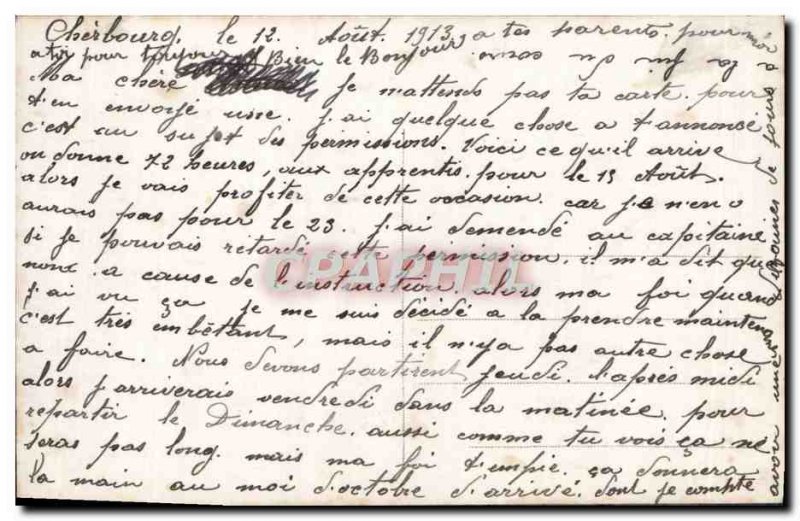 Cherbourg, le 12 Août 1913,
Ma chère
Je mattends pas ta carte. pour
t'en envoyé une. J'ai quelque chose a t'annoncé
c'est au sujet des permissions. Voici ce qu'il arrive
on donne 72 heures, aux apprentis. pour le 15 Août.
alors je vais profiter de cette occasion. car je n'en
aurais pas pour le 23. J'ai demendé au capitaine
si je pouvais retardé cette permission. il m'a dit que
non. a cause de l'instruction. alors ma foi quand
j'ai vu ça je me suis décidé a la prendre maintenant
c'est très embêtant, mais il n'ya pas autre chose
a faire. Nous devons partirent jeudi. l'après midi
alors j'arriverais vendredi dans la matinée. pour
repartir le Dimanche. aussi comme tu vois ça ne
seras pas long. mais ma foi t'empie. ça donnera
la main au moi d'octobre d'arrivé. dont je compte
avoir une de jours
a tes parents. pour moi
Bien le Bonjour
a toi pour toujours
CPAPHIL